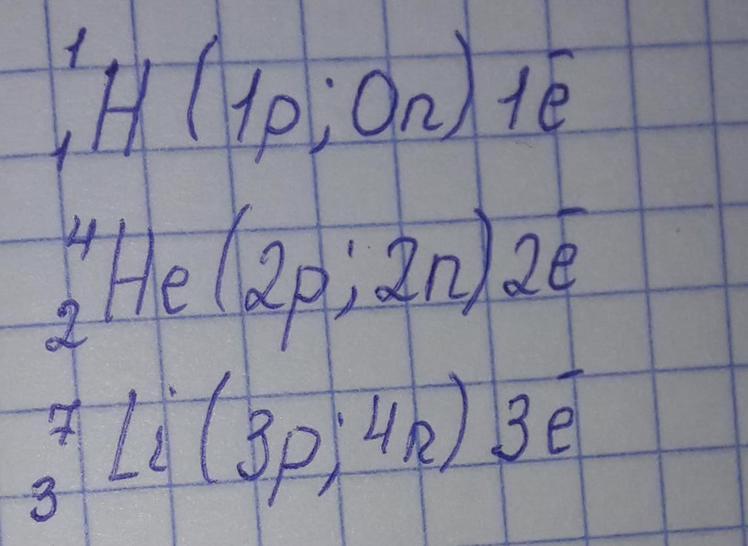 ¹₁H (1p; 0n) 1ē
⁴₂He (2p; 2n) 2ē
⁷₃Li (3p; 4n) 3ē